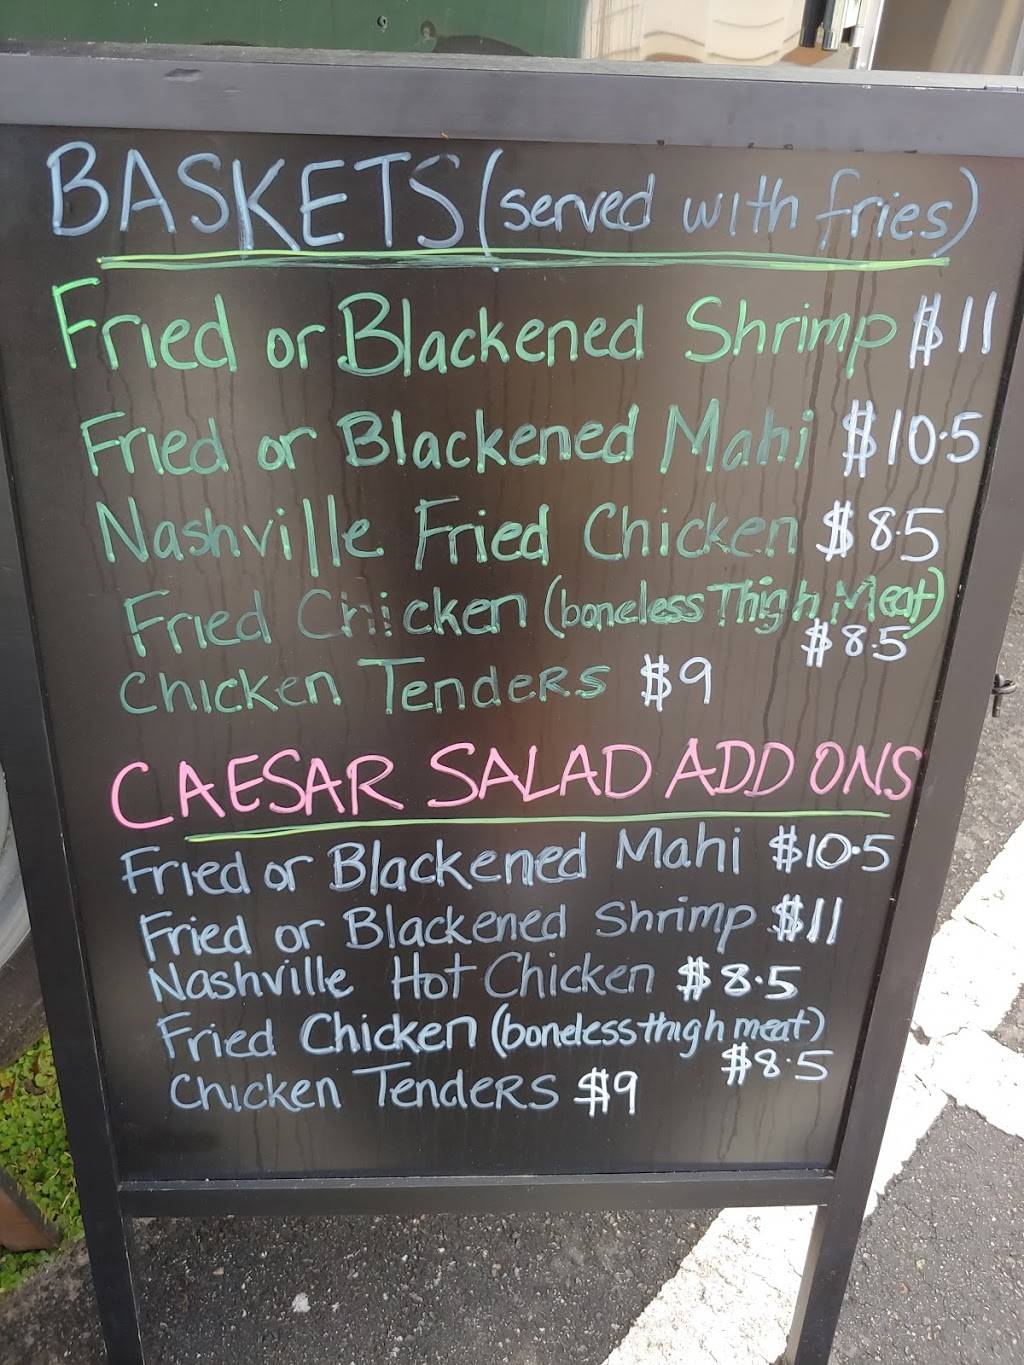 BASKETS (served with fries)
Fried or Blackened Shrimp $11
Fried or Blackened Mahi $10.5
Nashville Fried Chicken $8.5
Fried Chicken (boneless Thigh Meat)
$8.5
Chicken Tenders $9
CAESAR SALAD ADD ONS
Fried or Blackened Mahi $10.5
Fried or Blackened Shrimp $11
Nashville Hot Chicken $8.5
Fried Chicken (boneless thigh meat)
$8.5
Chicken Tenders $9